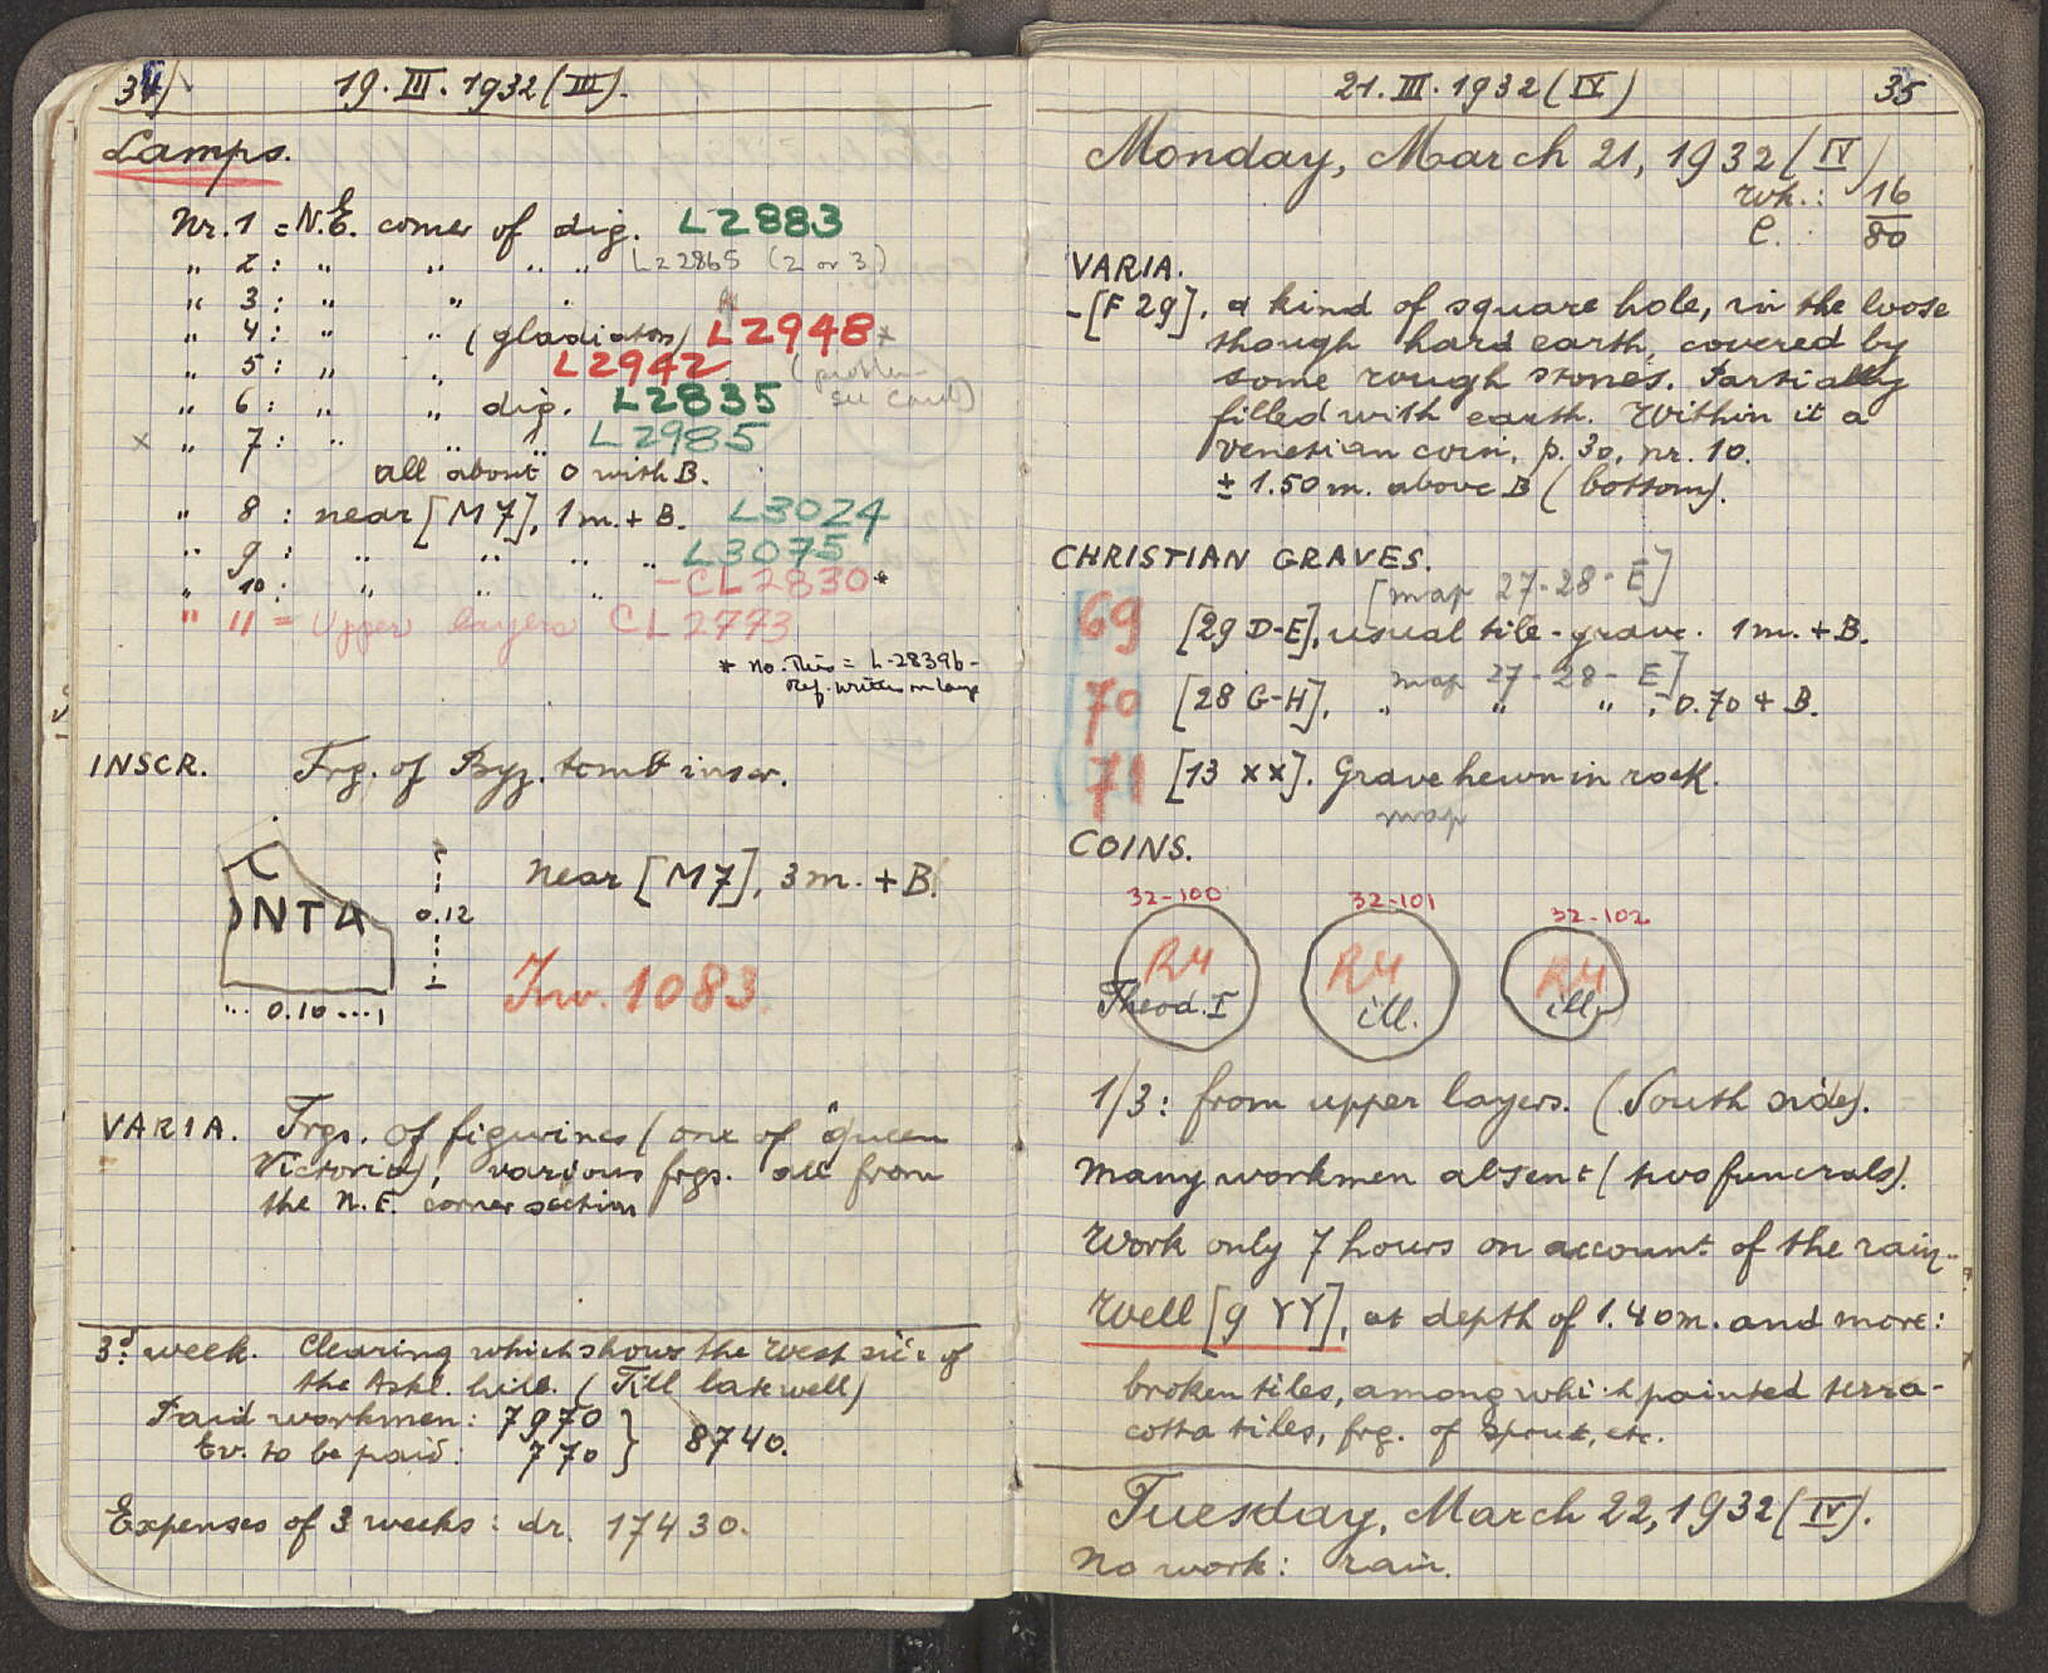 34)
19. III. 1932 (III).
Lamps.
Nr. 1 = N.E. corner of dig. L2883
" 2 : " " " " L22865 (2 or 3)
" 3 : " " "
" 4 : " " (gladiators) L2948*
" 5 : " " L2942 (problem
" 6 : " " dig. L2835 see card)
x " 7 : " " " L2985
all about 0 with B.
" 8 : near [M 7], 1 m. + B. L3024
" 9 : " " " " L3075
" 10 : " " " - CL2830*
" 11 = Upper layers CL2773
* no. This = L-2839b-
Ref. written on lamp
INSCR. Frg. of Byz. tomb inscr.
C
ONTA
0.12
0.10
Near [M 7], 3 m. + B.
Inv. 1083.
VARIA. Frgs. of figurines (one of "Queen
Victoria), various frgs. all from
the N.E. corner section
3d week. Clearing which shows the West side of
the Askl. hill. (Till late well)
Paid workmen: 7970
Ev. to be paid: 770 } 8740.
Expenses of 3 weeks: dr. 17430.
21. III. 1932 (IV)
35
Monday, March 21, 1932 (IV)
Wk.: 16
C. : 80
VARIA.
- [F 29], a kind of square hole, in the loose
though hard earth, covered by
some rough stones. Partially
filled with earth. Within it a
Venetian coin, p. 30, nr. 10.
± 1.50 m. above B (bottom).
CHRISTIAN GRAVES.
[map 27-28-E]
69 [29 D-E], usual tile-grave. 1 m. + B.
map 27-28-E]
70 [28 G-H], " " " : 0.70 + B.
71 [13 XX]. Grave hewn in rock.
map
COINS.
32-100 32-101 32-102
R4 R4 R4
Theod. I ill. ill.
1/3: from upper layers. (South side).
Many workmen absent (two funerals).
Work only 7 hours on account of the rain.
Well [9 YY], at depth of 1.40 m. and more:
broken tiles, among which painted terra-
cotta tiles, frg. of spout, etc.
Tuesday, March 22, 1932 (IV).
No work: rain.